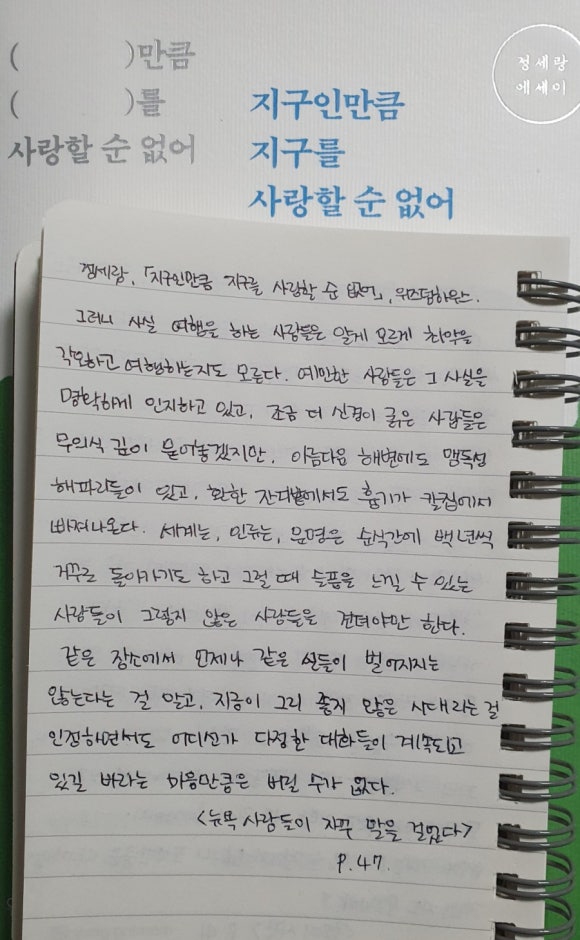 (            )만큼
(            )를
사랑할 순 없어
정세랑
에세이
지구인만큼
지구를
사랑할 순 없어
정세랑, 「지구인만큼 지구를 사랑할 순 없어」, 위즈덤하우스.
그러니 사실 여행을 하는 사람들은 알게 모르게 최악을
각오하고 여행하는지도 모른다. 예민한 사람들은 그 사실을
명확하게 인지하고 있고, 조금 더 신경이 굵은 사람들은
무의식 깊이 묻어놓겠지만. 아름다운 해변에도 맹독성
해파리들이 있고, 환한 잔디밭에서도 흉기가 칼집에서
빠져나온다. 세계는, 인류는, 문명은 순식간에 백 년씩
거꾸로 돌아가기도 하고 그럴 때 슬픔을 느낄 수 있는
사람들이 그렇지 않은 사람들을 견뎌야만 한다.
같은 장소에서 언제나 같은 일들이 벌어지지는
않는다는 걸 알고, 지금이 그리 좋지 않은 시대라는 걸
인정하면서도 어디선가 다정한 대화들이 계속되고
있길 바라는 마음만큼은 버릴 수가 없다.
<뉴욕 사람들이 자꾸 말을 걸었다>
P.47.